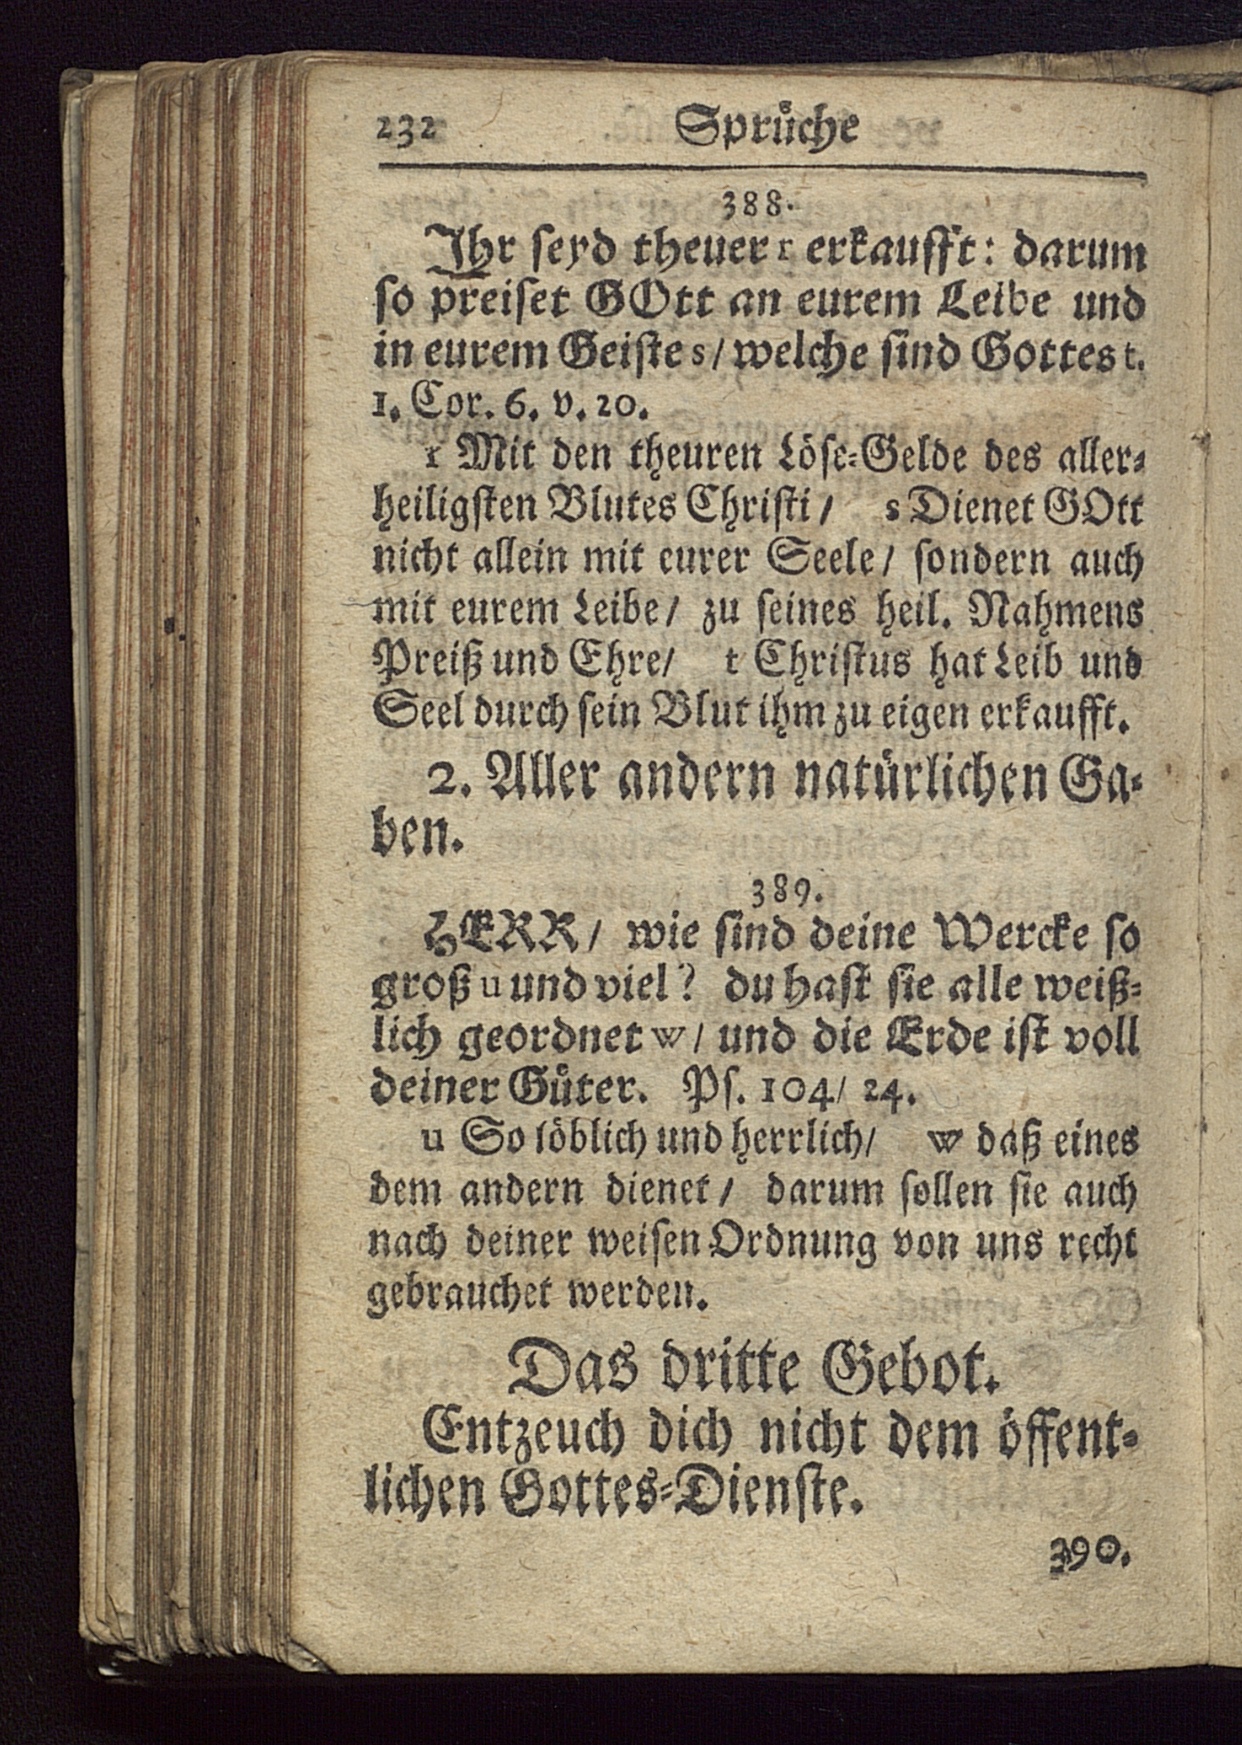 232 Sprůche
388.
Ihr ſeyd theuer r erkaufft: darum
ſo preiſet GOtt an eurem Leibe und
in eurem Geiſte s/ welche ſind Gottes t.
1. Cor. 6. v. 20.
r Mit den theuren Löſe-Gelde des aller-
heiligſten Blutes Chriſti/ s Dienet GOtt
nicht allein mit eurer Seele/ ſondern auch
mit eurem Leibe/ zu ſeines heil. Nahmens
Preiß und Ehre/ t Chriſtus hat Leib und
Seel durch ſein Blut ihm zu eigen erkaufft.
2. Aller andern natürlichen Ga-
ben.
389.
HERR/ wie ſind deine Wercke ſo
groß u und viel? du haſt ſie alle weiß-
lich geordnet w/ und die Erde iſt voll
deiner Gůter. Pſ. 104/ 24.
u So löblich und herrlich/ w daß eines
dem andern dienet/ darum ſollen ſie auch
nach deiner weiſen Ordnung von uns recht
gebrauchet werden.
Das dritte Gebot.
Entzeuch dich nicht dem öffent-
lichen Gottes-Dienſte.
390.